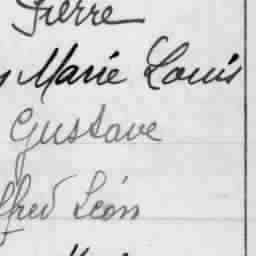 Pierre
Marie Louis
Gustave
lfred Léon